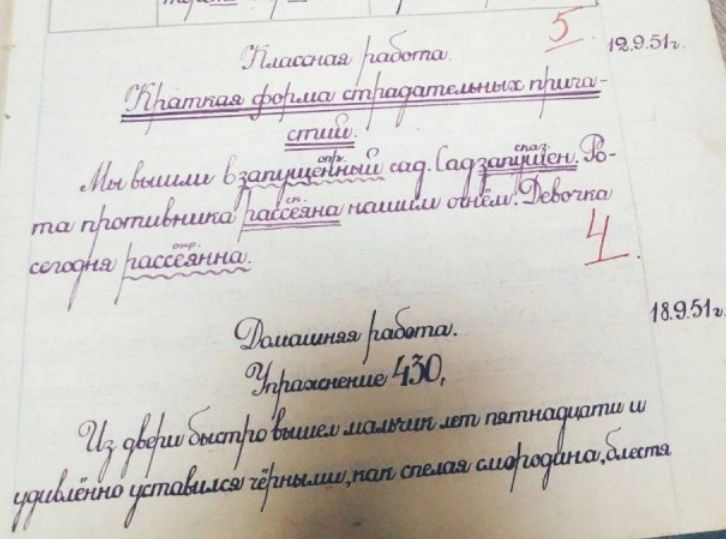 5
12.9.51г.
Классная работа.
Краткая форма страдательных прича-
стий.
опр.
сказ.
Мы вышли в запущенный сад. Сад запущен. Ро-
ск.
та противника рассеяна нашим огнём. Девочка
опр.
сегодня рассеянна.
4
18.9.51г.
Домашняя работа.
Упражнение 430,
Из двери быстро вышел мальчик лет пятнадцати и
удивлённо уставился чёрными, как спелая смородина, блестя